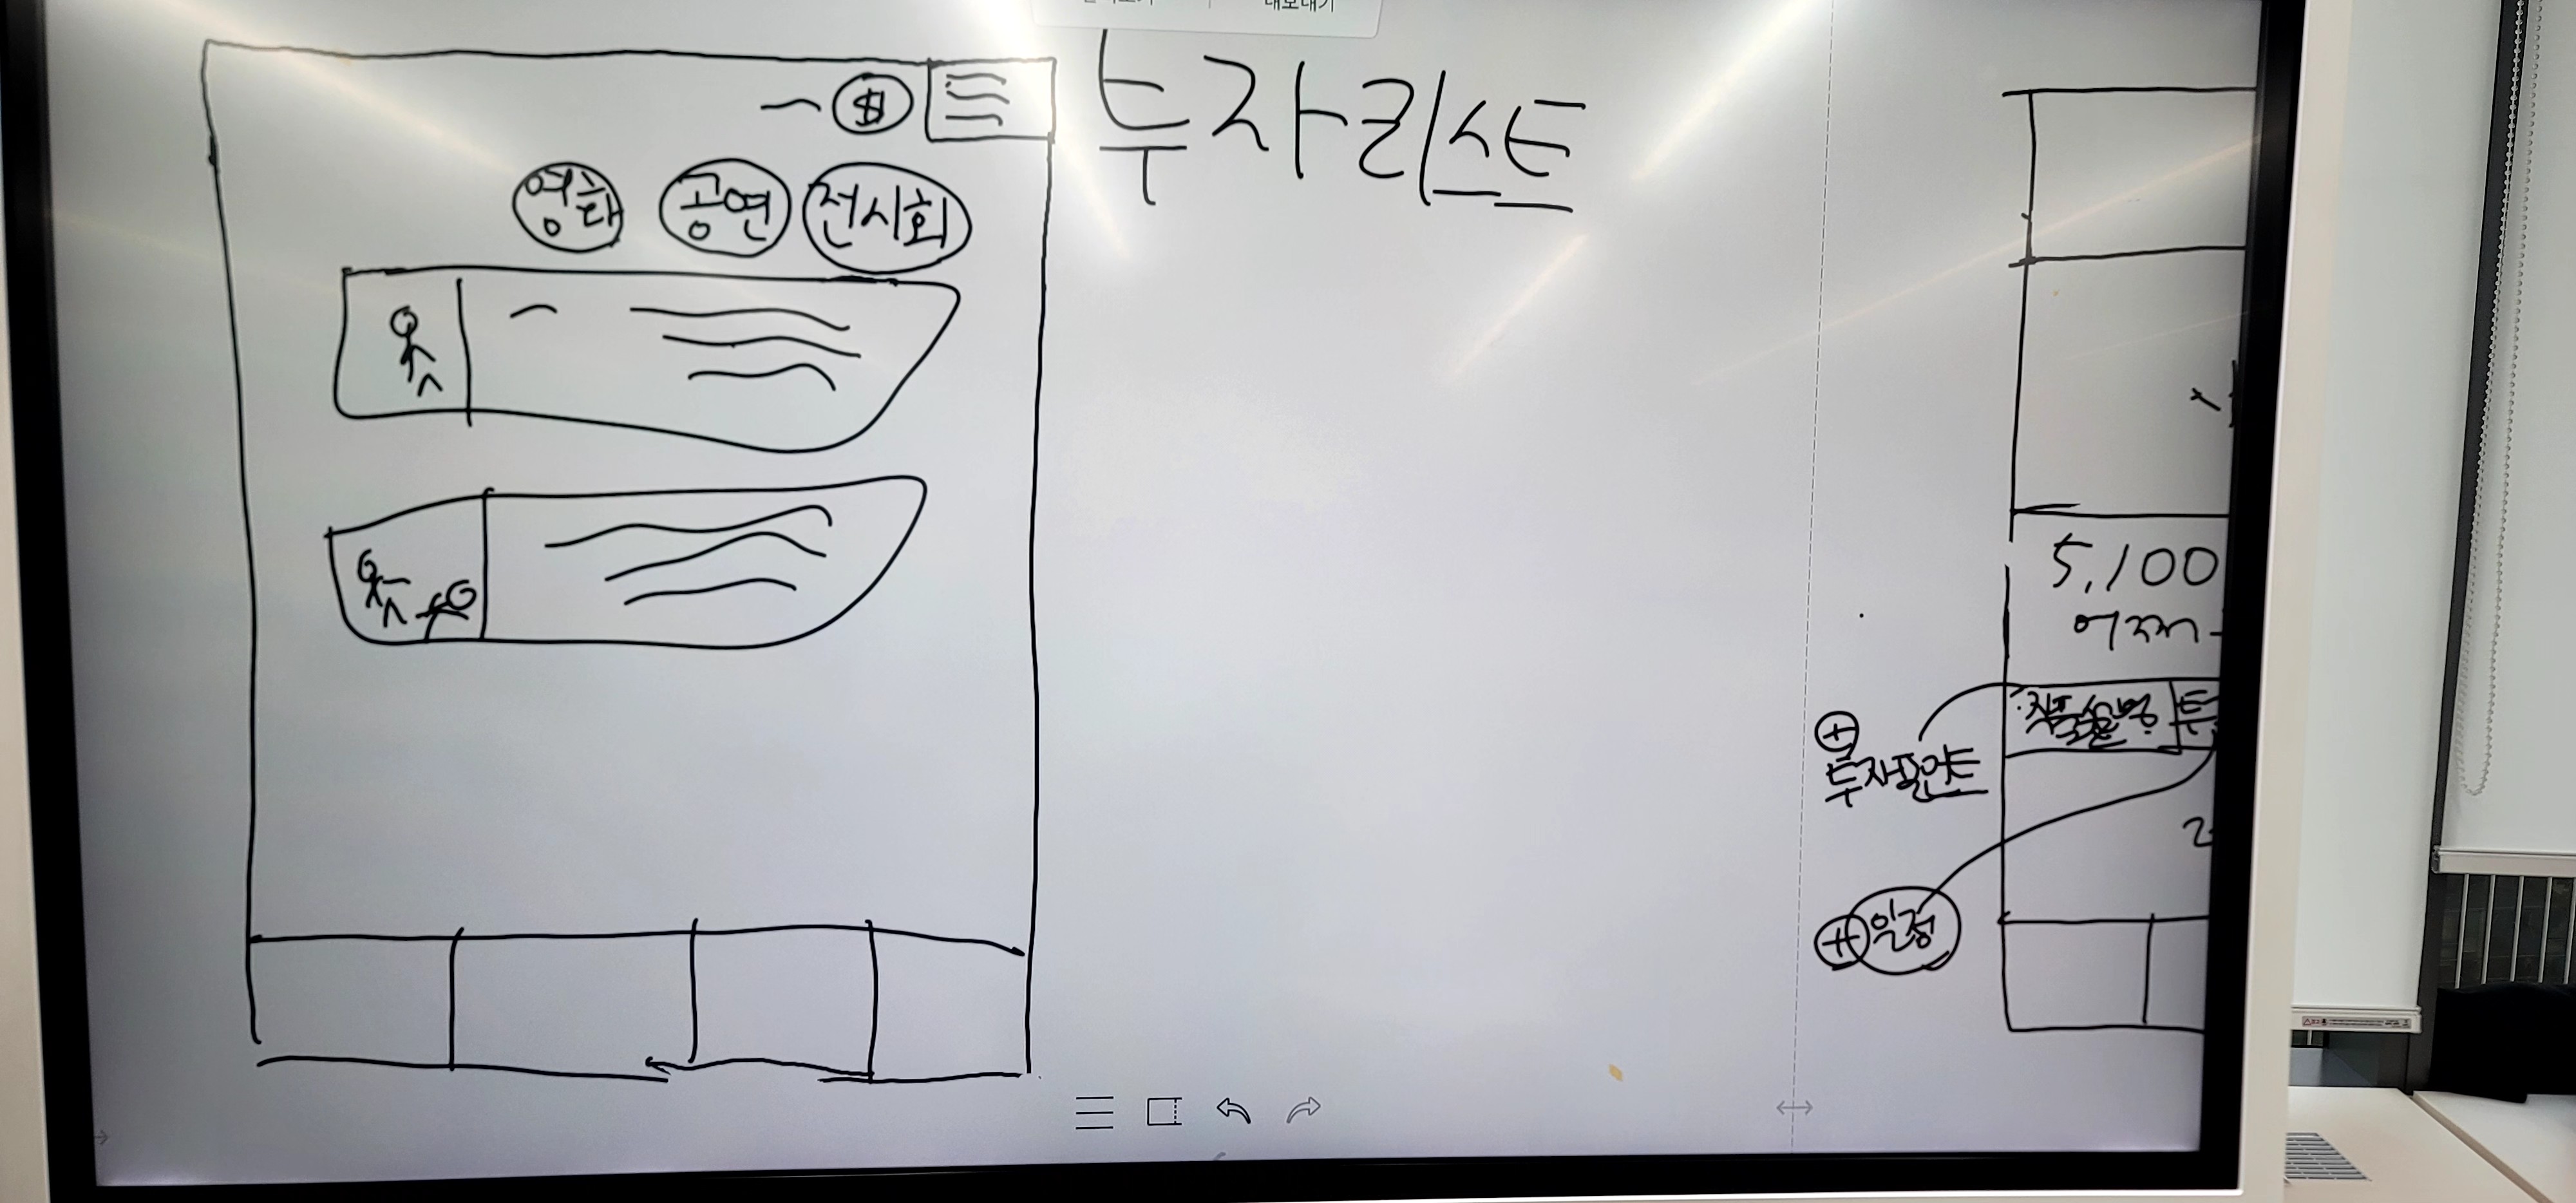 내보내기
$
투자리스트
영화
공연
전시회
5,100
어제
작품설명
투
⊕
투자포인트
⊕
일정